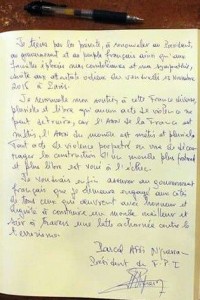 Je tiens par la présente, à renouveler au Président,
au gouvernement et au peuple français ainsi qu'aux
familles éplorées mes condoléances et ma sympathie,
suite aux attentats odieux du vendredi 13 novembre
2015 à Paris.
Je renouvelle mon soutien à cette France diverse,
plurielle et libre qu'aucun acte de violence ne
peut détruire, car l'âme de la France est
métisse, l'âme du monde est métisse et plurielle.
Tout acte de violence perpétré en vue de décou-
rager la construction d'un monde plus fraternel
et plus libre est voué à l'échec.
Je voudrais enfin assurer au gouvernement
français que je demeure engagé aux côtés
de tous ceux qui œuvrent avec honneur et
dignité à construire un monde meilleur et
sûr à travers une lutte acharnée contre le
terrorisme.
Pascal Affi N'Guessan
Président du F.P.I